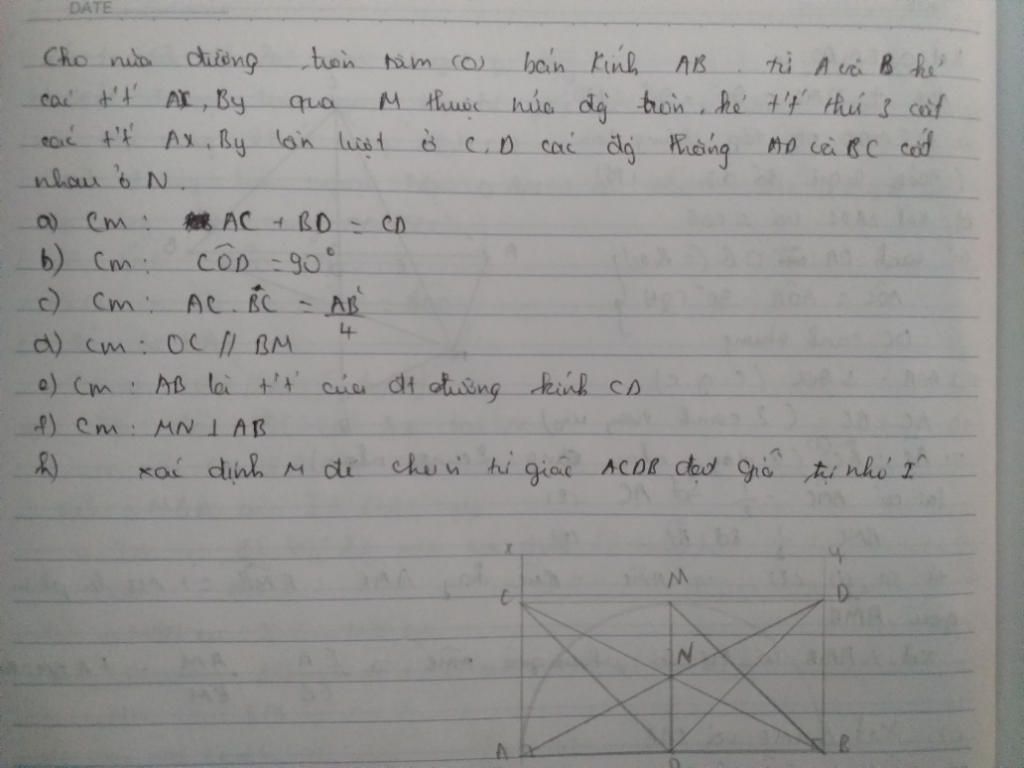 DATE
Cho nửa đường tròn tâm (O) bán kính AB. từ A và B kẻ
các t't' Ax, By qua M thuộc nửa đg tròn, kẻ t't' thứ 3 cắt
các t't' Ax, By lần lượt ở C, D các đg thẳng AD và BC cắt
nhau ở N.
a) Cm: AC + BD = CD
b) Cm: CÔD = 90°
c) Cm: AC.BC = AB²/4
d) Cm: OC // BM
e) Cm: AB là t't' của đt đường kính CD
f) Cm: MN ⊥ AB
h) xác định M để chu vi tứ giác ACDB đạt giá trị nhỏ I
x M y
C D
N
A O B